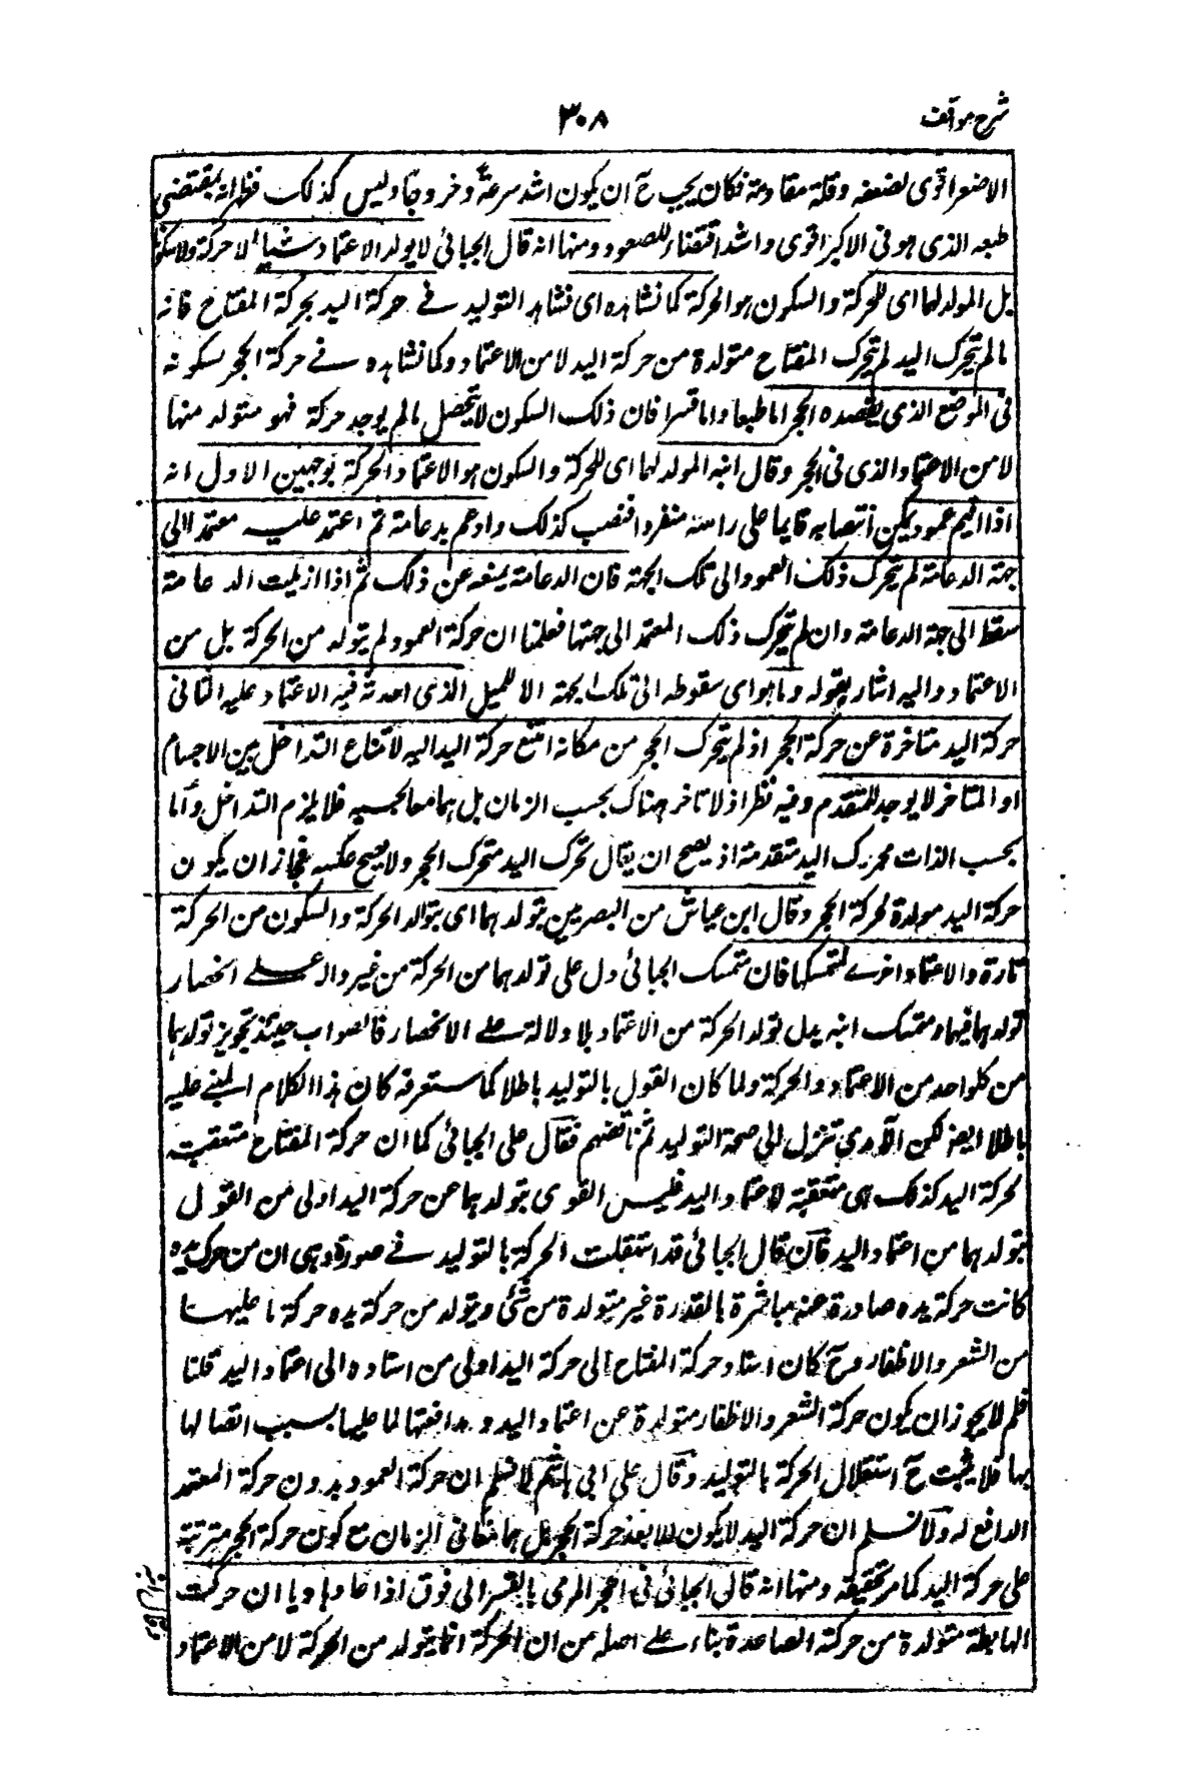 شرح مواقف
٣٠٨
الاصغر اقوى لضعفه وقلة مقاومته فكان يجب ح ان يكون اشد سرعة وخروجا وليس كذلك فظهر انه بمقتضى
طبعه الذى هو فى الاكبر اقوى واشد اقتضاء للصعود ومنها انه قال الجبائى لا يولد الاعتماد شيأ لا حركة ولا سكونا
بل المولد لهما اى للحركة والسكون هو الحركة كما نشاهده اى نشاهد التوليد فے حركة اليد بحركة المفتاح فانه
مالم يتحرك اليد لم يتحرك المفتاح متولدة من حركة اليد لا من الاعتماد وكما نشاهده فے حركة الحجر لسكونه
فى الموضع الذى يقصده الحجر اما طبعا واما قسرا فان ذلك السكون لا يحصل مالم يوجد حركة فهو متولد منها
لا من الاعتماد الذى فى الحجر وقال ابنه المولد لهما اى للحركة والسكون هو الاعتماد لا الحركة بوجهين الاول انه
اذا اقيم عمود يمكن انتصابه قايما على راسه منفردا فنصب كذلك وادعم بدعامة ثم اعتمد عليه معتمد الى
جهة الدعامة لم يتحرك ذلك العمود الى تلك الجهة فان الدعامة يمنعه عن ذلك ثم اذا ازيلت الدعامة
سقط الى جهة الدعامة وان لم يتحرك ذلك المعتمد الى جهتها فعلمنا ان حركة العمود لم يتولد من الحركة بل من
الاعتماد واليه اشار بقوله وما هو اى سقوطه الى تلك الجهة الا للميل الذى احدثه فيه الاعتماد عليه الثانى
حركة اليد متاخرة عن حركة الحجر اذ لم يتحرك الحجر من مكانه امتنع حركة اليد اليه لامتناع التداخل بين الاجسام
او المتاخر لا يوجد المتقدم وفيه نظر اذ لا تاخر هناك بحسب الزمان بل هما معا بحسبه فلا يلزم التداخل واما
بحسب الذات فحركة اليد متقدمة اذ يصح ان يقال تحرك اليد فتحرك الحجر ولا يصح عكسه فجاز ان يكون
حركة اليد مولدة لحركة الحجر وقال ابن عياش من البصريين بتولدهما اى بتولد الحركة والسكون من الحركة
تارة والاعتماد اخرے لتمسكهما فان متمسك الجبائى دل على تولدهما من الحركة من غير دلالة علے انحصار
تولدهما فيها ومتمسك ابنه يدل بتولد الحركة من الاعتماد بلا دلالة علے الانحصار فالصواب حينئذ تجويز تولدهما
من كل واحد من الاعتماد والحركة ولما كان القول بالتوليد باطلا كما ستعرفه كان هذا الكلام المبنے عليه
باطلا ايضا لكن الآمدى تنزل الى صحة التوليد ثم ناقضهم فقال على الجبائى كما ان حركة المفتاح متعقبة
لحركة اليد كذلك هى متعقبة لاعتماد اليد فليس القول بتولدهما عن حركة اليد اولى من القول
بتولدهما من اعتماد اليد فان قال الجبائى قد استقلت الحركة بالتوليد فے صورة وهى ان من حرك يده
كانت حركة يده صادرة عنه مباشرة بالقدرة غير متولدة من شئ ويتولد من حركة يده حركة ما عليها
من الشعر والاظفار وح كان اسناد حركة المفتاح الى حركة اليد اولى من اسناده الى اعتماد اليد قلنا
فلم لا يجوز ان يكون حركة الشعر والاظفار متولدة عن اعتماد اليد ومدافعتها لما عليها بسبب اتصالها
بها فلا يثبت ح استقلال الحركة بالتوليد وقال على ابى هاشم لا نسلم ان حركة العمود بدون حركة المعتمد
الدافع له ولا نسلم ان حركة اليد لا يكون الا بعد حركة الحجر بل هما معا فى الزمان مع كون حركة الحجر مترتبة
على حركة اليد كما مر تحقيقه ومنها انه قال الجبائى فى الحجر المرمى بالقسر الى فوق اذا عاد هاويا ان حركته
الهابطة متولدة من حركته الصاعدة بناء علے اصله من ان الحركة انما يتولد من الحركة لا من الاعتماد